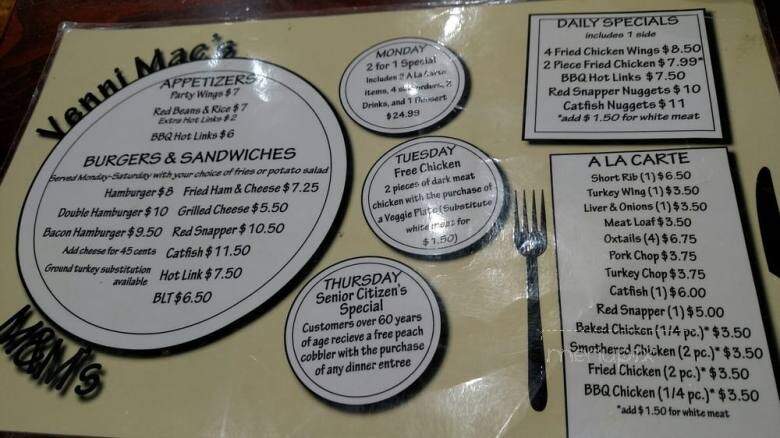 Yenni Mac's
M&M's
APPETIZERS
Party Wings $7
Red Beans & Rice $7
Extra Hot Links $2
BBQ Hot Links $6
BURGERS & SANDWICHES
Served Monday-Saturday with your choice of fries or potato salad
Hamburger $8 Fried Ham & Cheese $7.25
Double Hamburger $10 Grilled Cheese $5.50
Bacon Hamburger $9.50 Red Snapper $10.50
Add cheese for 45 cents Catfish $11.50
Ground turkey substitution
available Hot Link $7.50
BLT $6.50
MONDAY
2 for 1 Special
Includes 2 A La Carte
items, 4 side orders, 2
Drinks, and 1 Dessert
$24.99
TUESDAY
Free Chicken
2 pieces of dark meat
chicken with the purchase of
a Veggie Plate (Substitute
white meat for
$1.50)
THURSDAY
Senior Citizen's
Special
Customers over 60 years
of age recieve a free peach
cobbler with the purchase
of any dinner entree
DAILY SPECIALS
includes 1 side
4 Fried Chicken Wings $8.50
2 Piece Fried Chicken $7.99*
BBQ Hot Links $7.50
Red Snapper Nuggets $10
Catfish Nuggets $11
*add $1.50 for white meat
A LA CARTE
Short Rib (1) $6.50
Turkey Wing (1) $3.50
Liver & Onions (1) $3.50
Meat Loaf $3.50
Oxtails (4) $6.75
Pork Chop $3.75
Turkey Chop $3.75
Catfish (1) $6.00
Red Snapper (1) $5.00
Baked Chicken (1/4 pc.)* $3.50
Smothered Chicken (2 pc.)* $3.50
Fried Chicken (2 pc.)* $3.50
BBQ Chicken (1/4 pc.)* $3.50
*add $1.50 for white meat